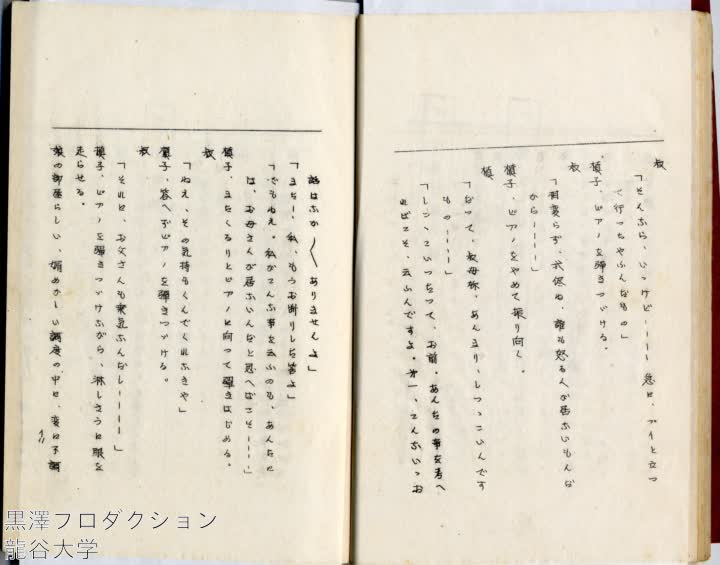 叔
「そんなら、いゝけど――― 急に、プイと立つ
て行っちゃふんだもの」
慎子、ピアノを弾きつづける。
叔
「相変らず、我侭ね、誰も怒る人が居ないもんだ
から―――」
慎子、ピアノをやめて振り向く。
慎
「だって、叔母称、あんまり、しつっこいんです
もの―――」
「しつっこいつたって、お前、あんたの事を考へ
ればこそ、云ふんですよ。才一、こんないゝお
話はなか〳〵ありませんよ」
「またー 私、もうお断りした筈よ」
「でもねえ。私がこんな事を云ふのも、あんたに
は、お母さんが居ないんだと思へばこそ―――」
慎子、またくるりとピアノに向って弾きはじめる。
叔
「ねえ、その気持もくんでくれなきや」
慎子、答へずピアノを弾きつづける。
叔
「それに、お父さんも
だし――――」
慎子、ピアノを弾きつづけながら、淋しさうに眼を
走らせる。
娘の部屋らしい、媚めかしい調度の中に、変に不調
黒澤プロダクション
龍谷大学